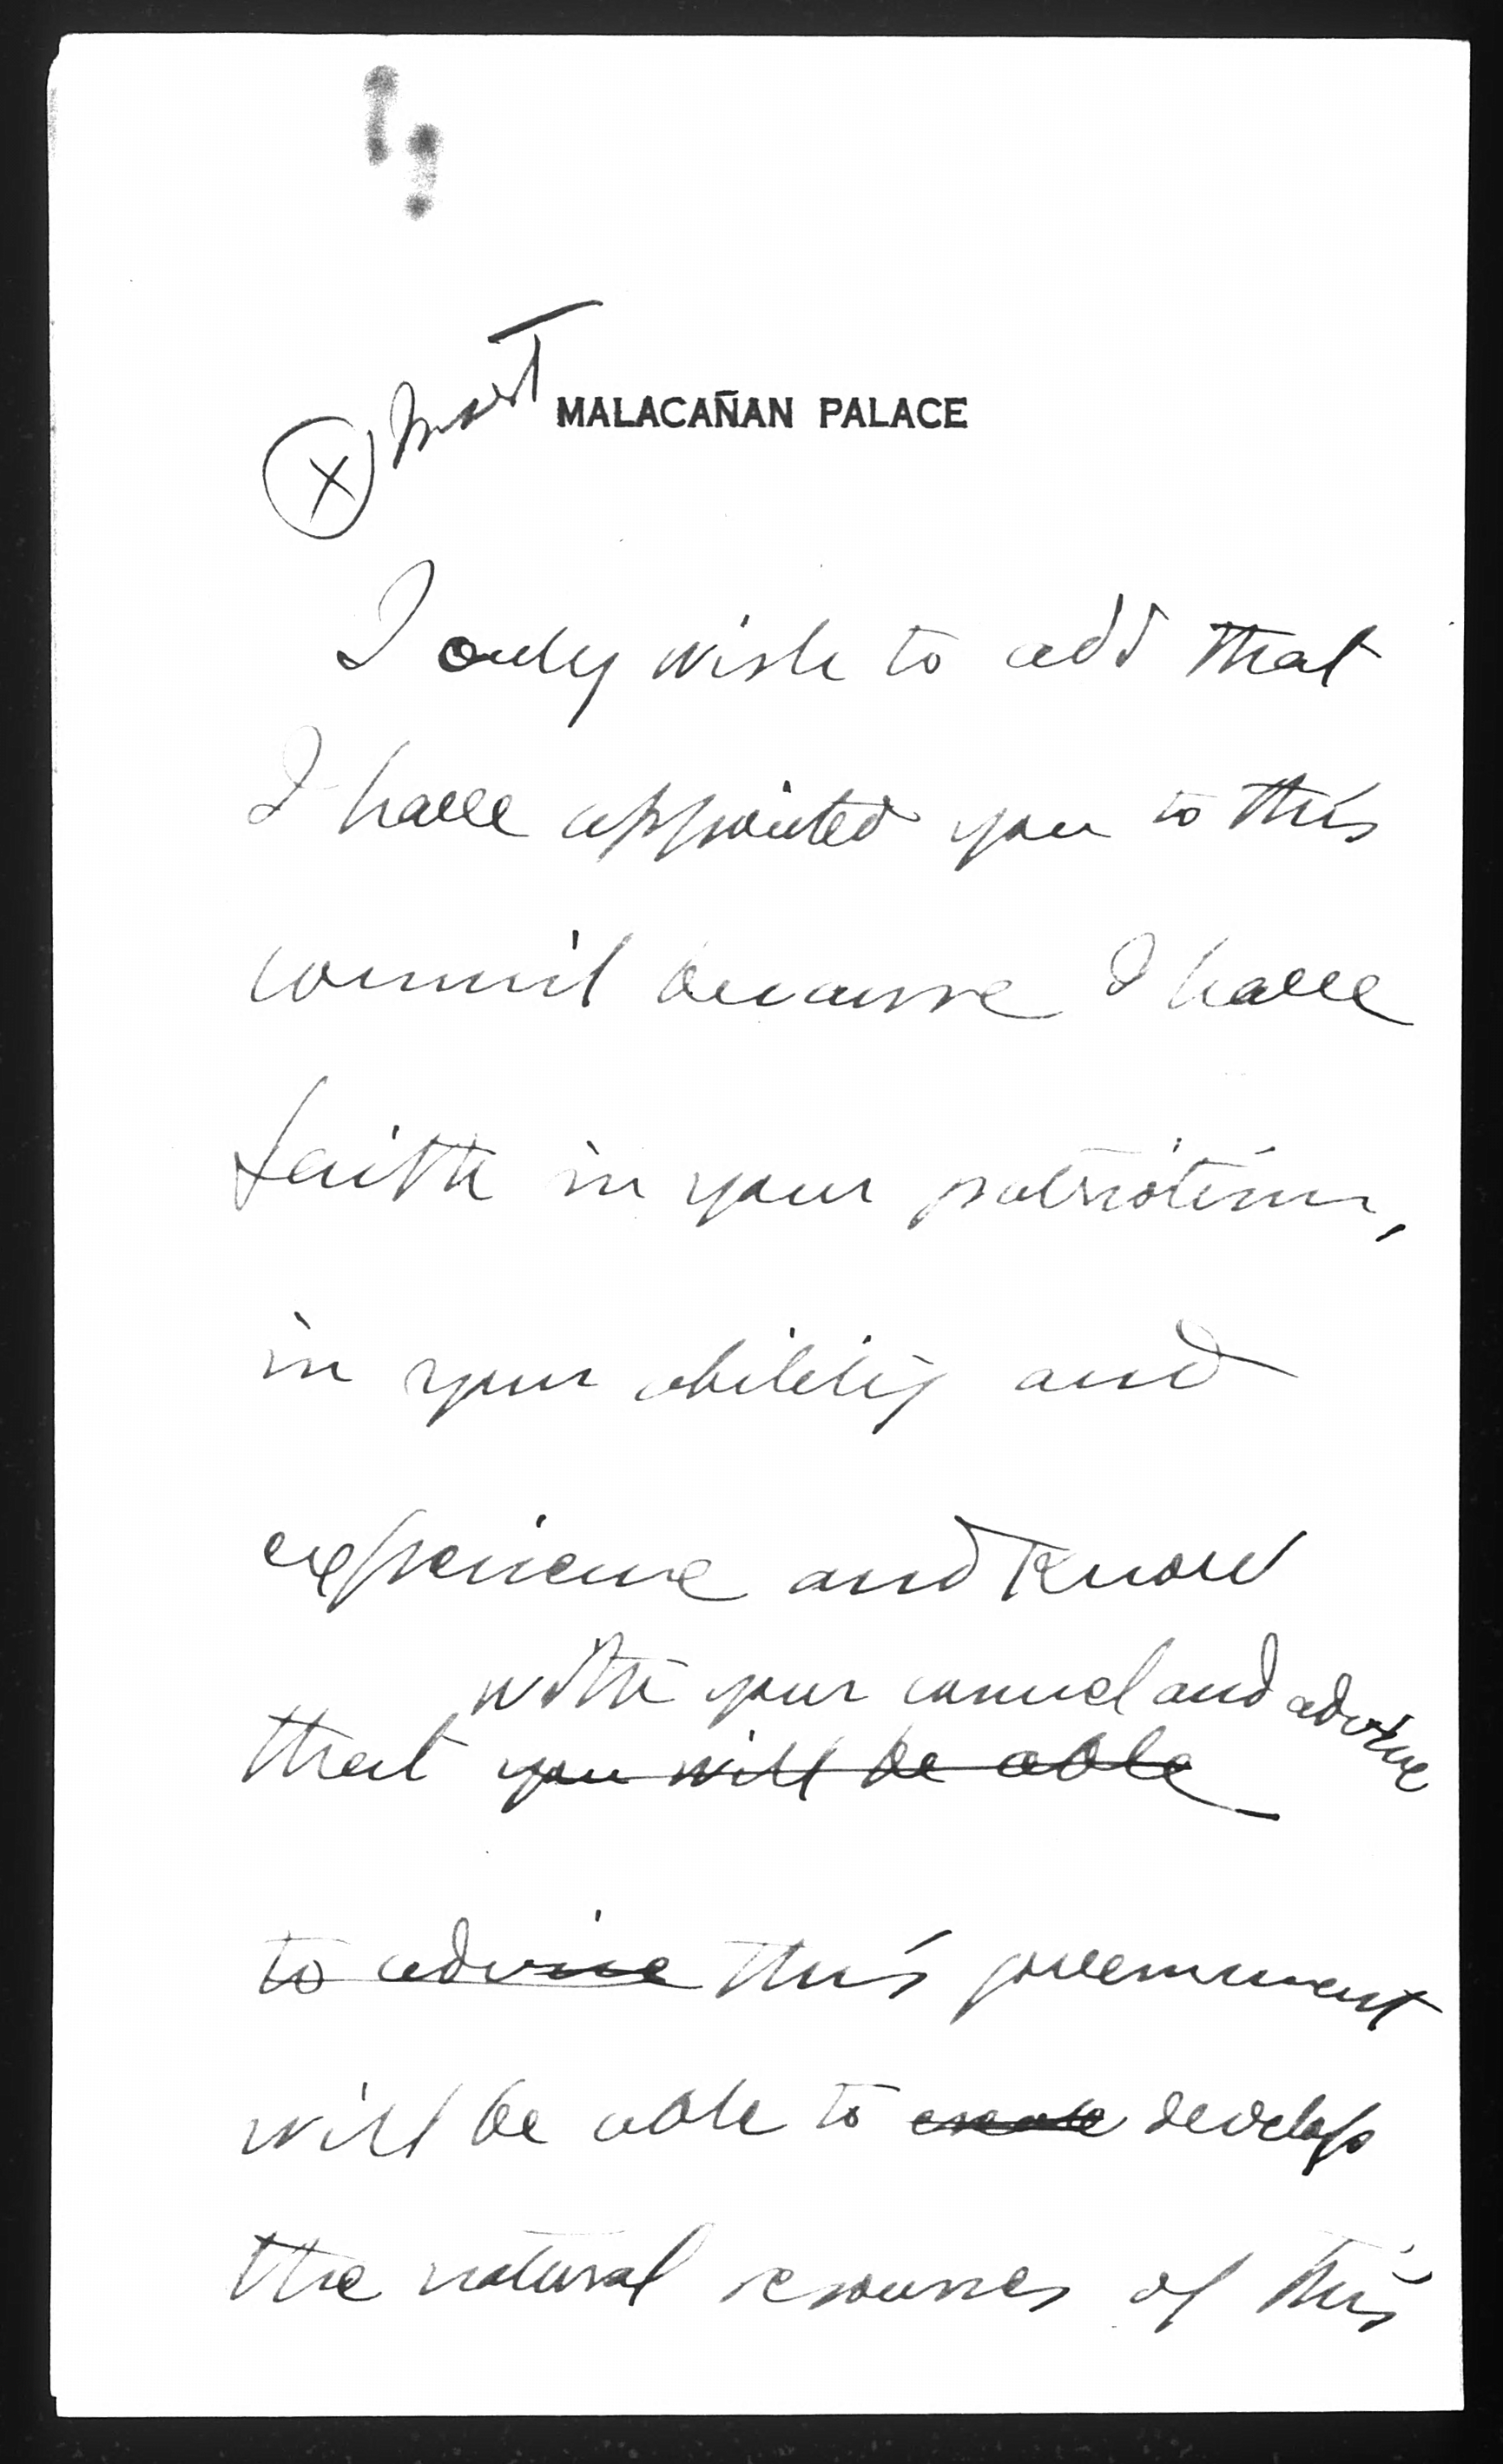 Insert
MALACAÑAN PALACE
X
I only wish to add that
I have appointed you to this
council because I have
faith in your patriotism,
in your ability and
experience and know
with your counsel and advice
that you will be able
to advise this government
will be able to develop
the natural resources of this